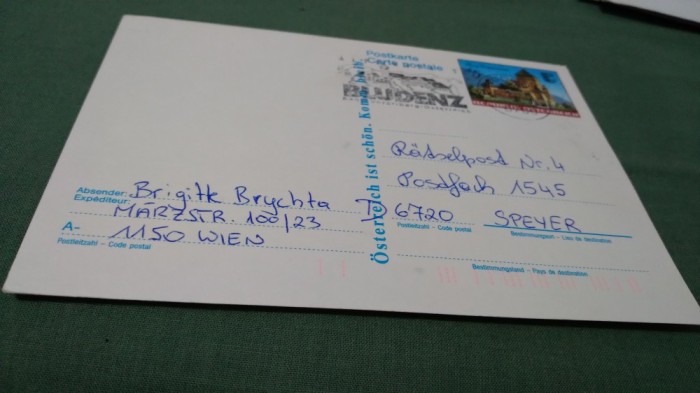 Postkarte
Carte postale
BLUDENZ
Österreich ist schön. Komm
Rätselpost Nr. 4
Postfach 1545
6720 SPEYER
Postleitzahl - Code postal Bestimmungsort - Lieu de destination
Bestimmungsland - Pays de destination
Absender: Brigitte Brychta
Expéditeur: MÄRZSTR. 100/23
A- 1150 WIEN
Postleitzahl - Code postal